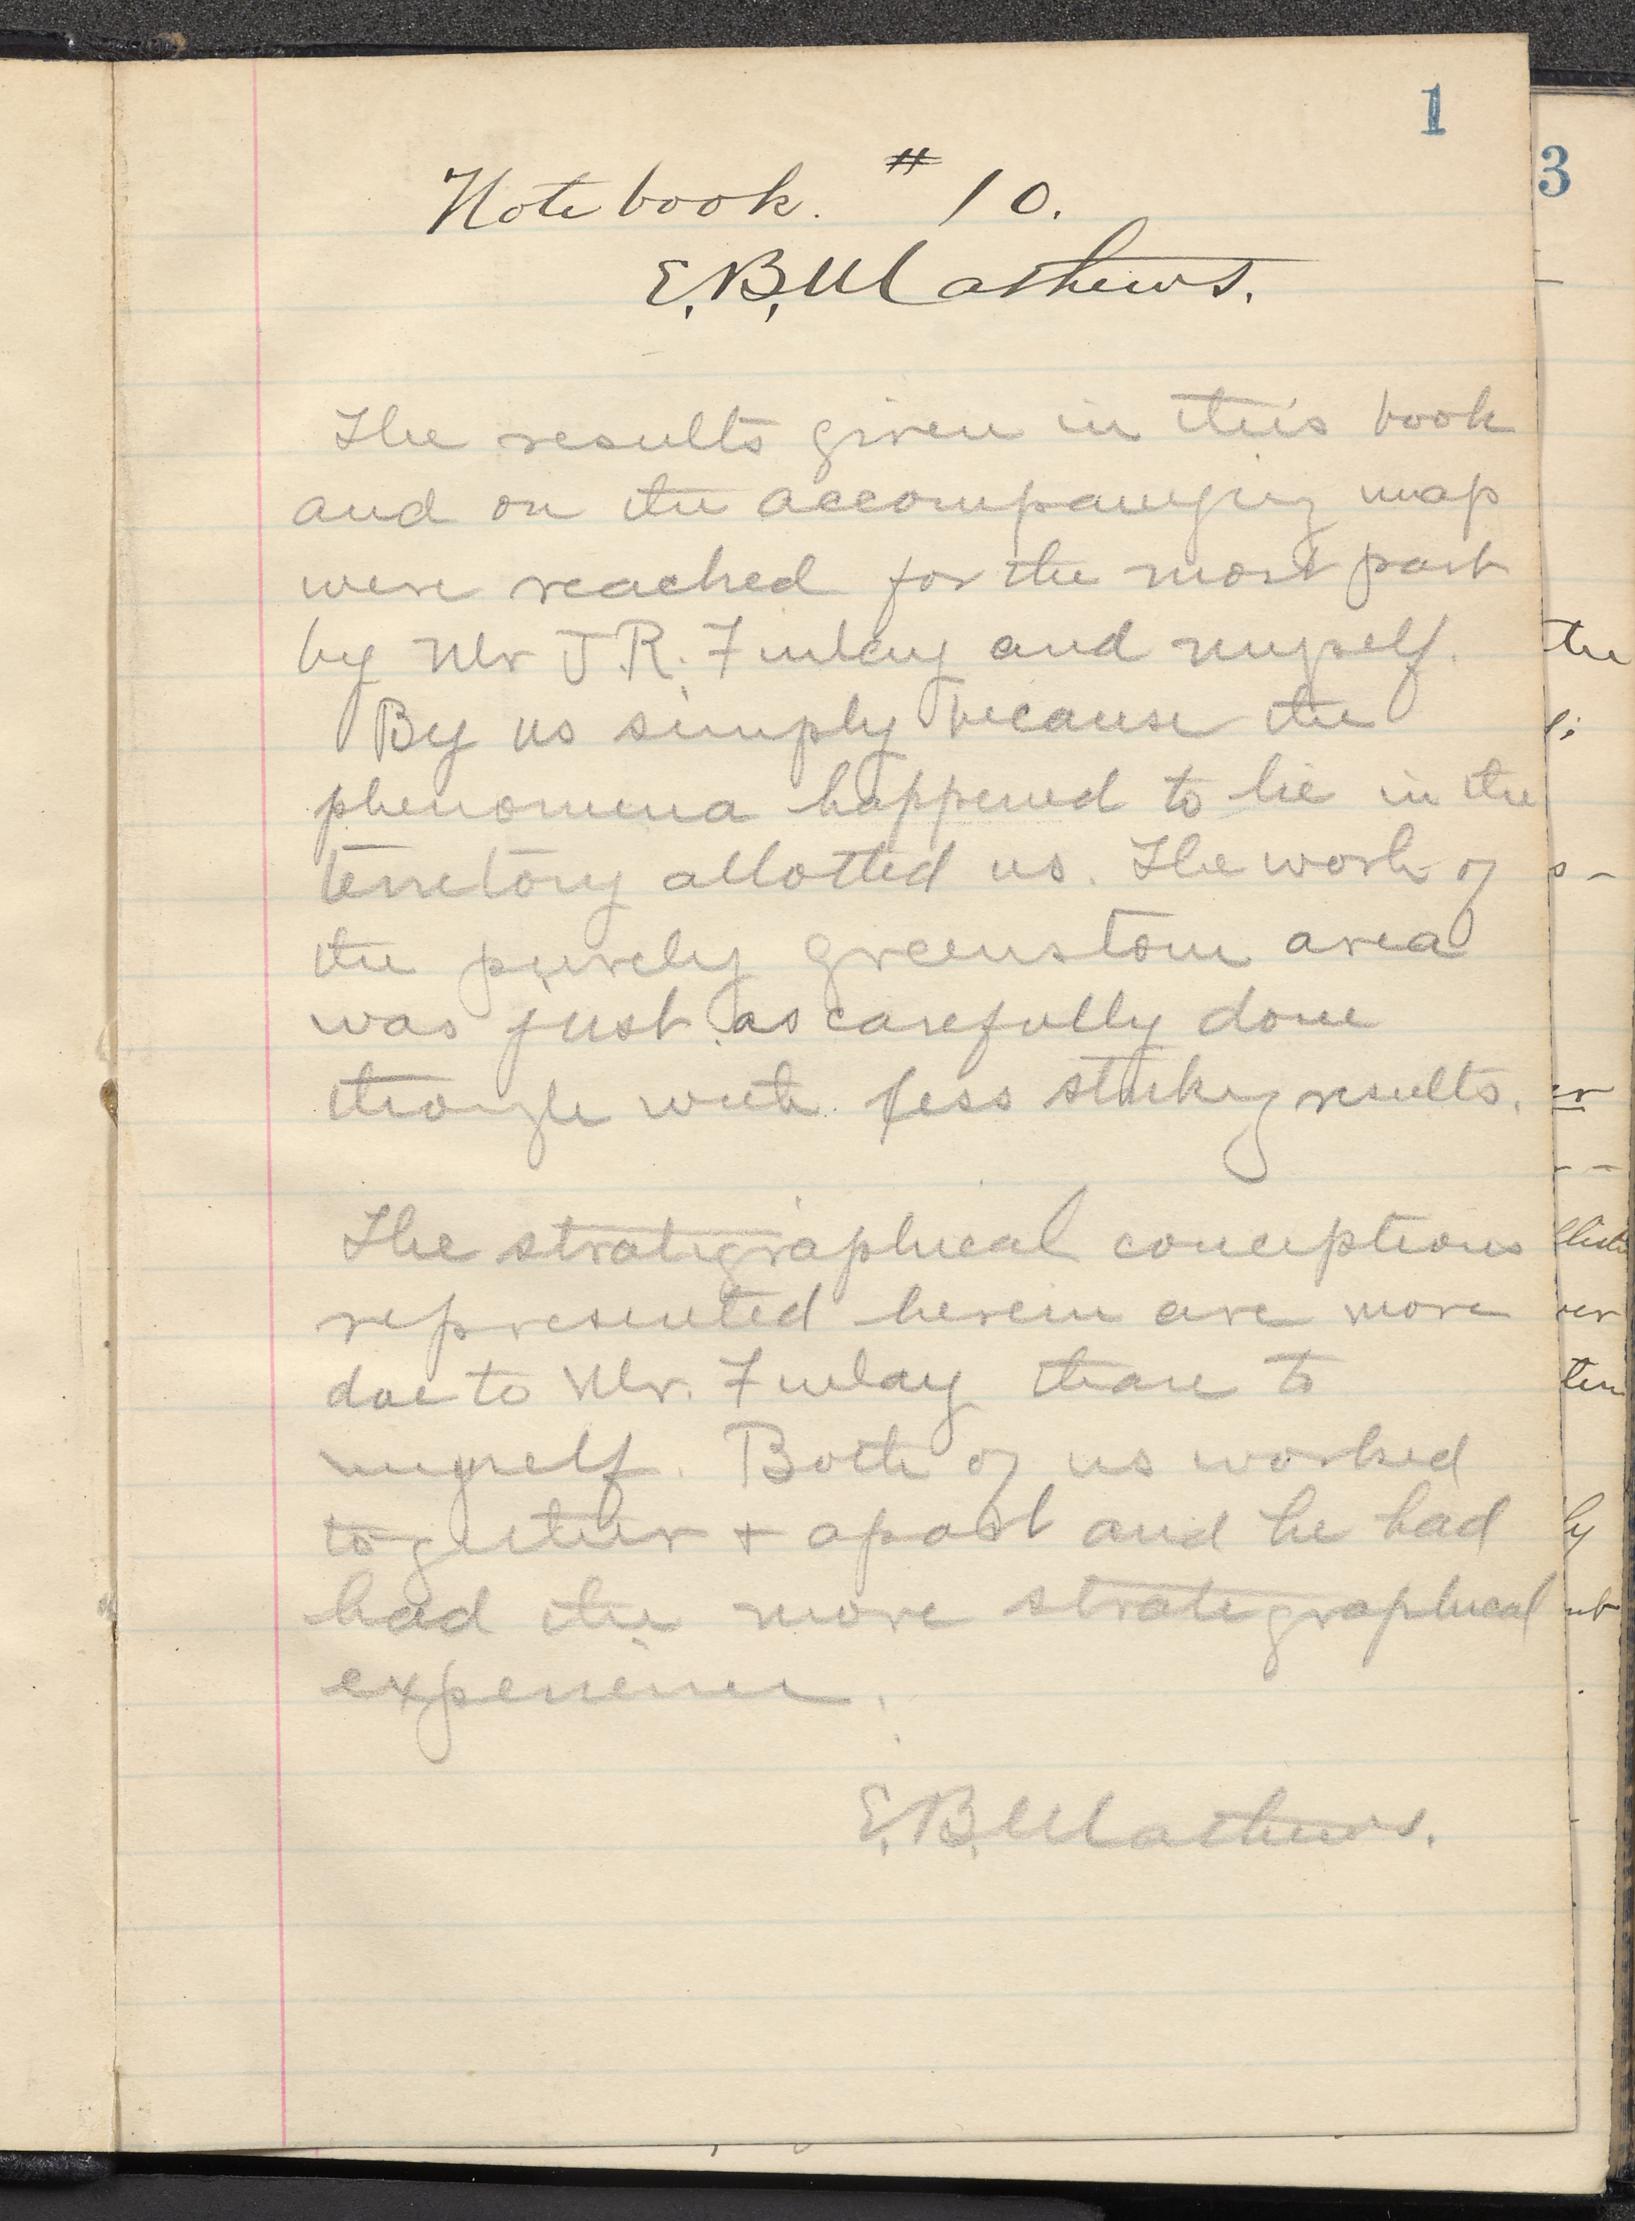 1
Notebook. # 10.
E.B. Mathews.
The results given in this book
and on the accompanying map
were reached for the most part
by Mr J.R. Finlay and myself.
By us simply because the
phenomena happened to lie in the
territory allotted us. The work of
the purely greenstone area
was just as carefully done
though with less striking results.
The stratigraphical conceptions
represented herein are more
due to Mr. Finlay than to
myself. Both of us worked
together + apart and he had
had the more stratigraphical
experience.
E.B. Mathews.
3
the
er
ten
ly